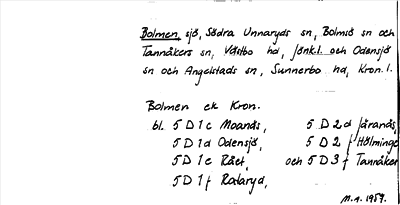 Bolmen, sjö, Södra Unnaryds sn, Bolmsö sn och
Tannåkers sn, Västbo hd, Jönk.l. och Odensjö
sn och Angelstads sn, Sunnerbo hd, Kron. l.
Bolmen ek Kron.
bl. 5 D 1 c Moanäs, 5 D 2 d Järanäs,
5 D 1 d Odensjö, 5 D 2 f Hölminge
5 D 1 e Rået, och 5 D 3 f Tannåker
5 D 1 f Rataryd,
M.A. 1959.